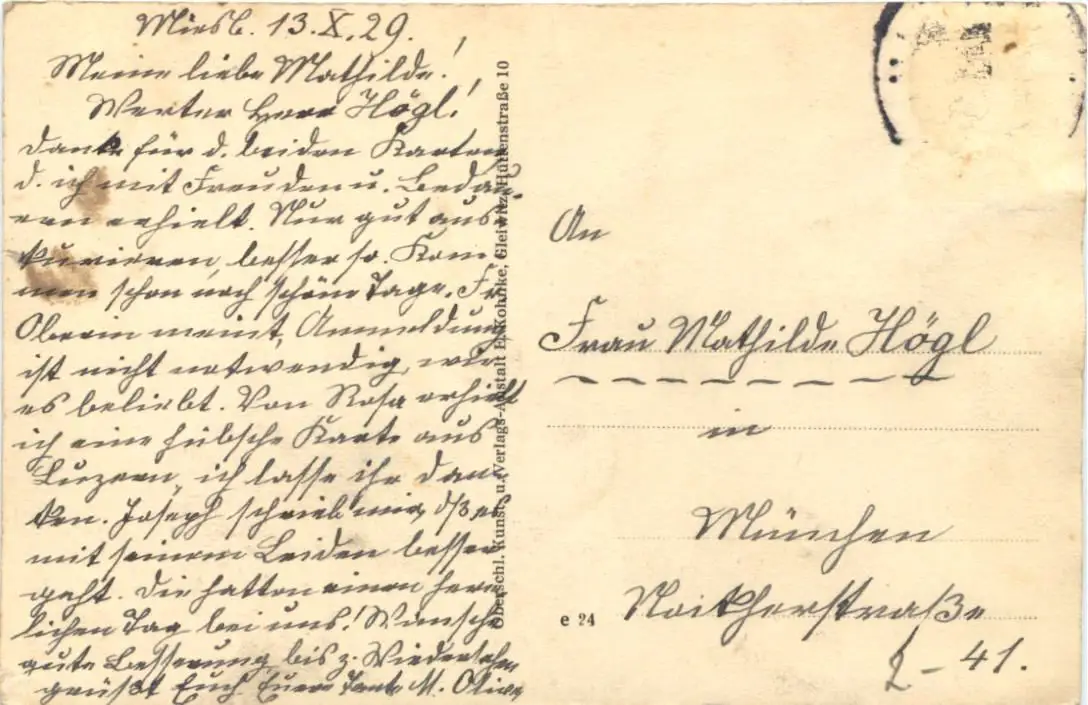 Miesb. 13.X.29.
Meine liebe Mathilde!
Werter Herr Högl!
Danke für d. beiden Karten
d. ich mit Freuden u. Bedau-
ern erhielt. Nur gut aus-
kurieren, besser so. Kom-
men schon noch schöne Tage. Fr.
Oberin meint, Anmeldung
ist nicht notwendig, wie
es beliebt. Von Rosa erhielt
ich eine hübsche Karte aus
Luzern, ich lasse ihr dan-
ken. Joseph schrieb mir, daß es
mit seinem Leiden besser
geht. Die hatten einen herr-
lichen Tag bei uns! Wünsche
gute Besserung, bis z. Wiedersehen
grüßt Euch Euere Tante M.
Oberschl. Kunst- u. Verlags-Anstalt Gleiwitz, Hüttenstraße 10
An
Frau Mathilde Högl
in
München
e 24
Noitherstraße
41.